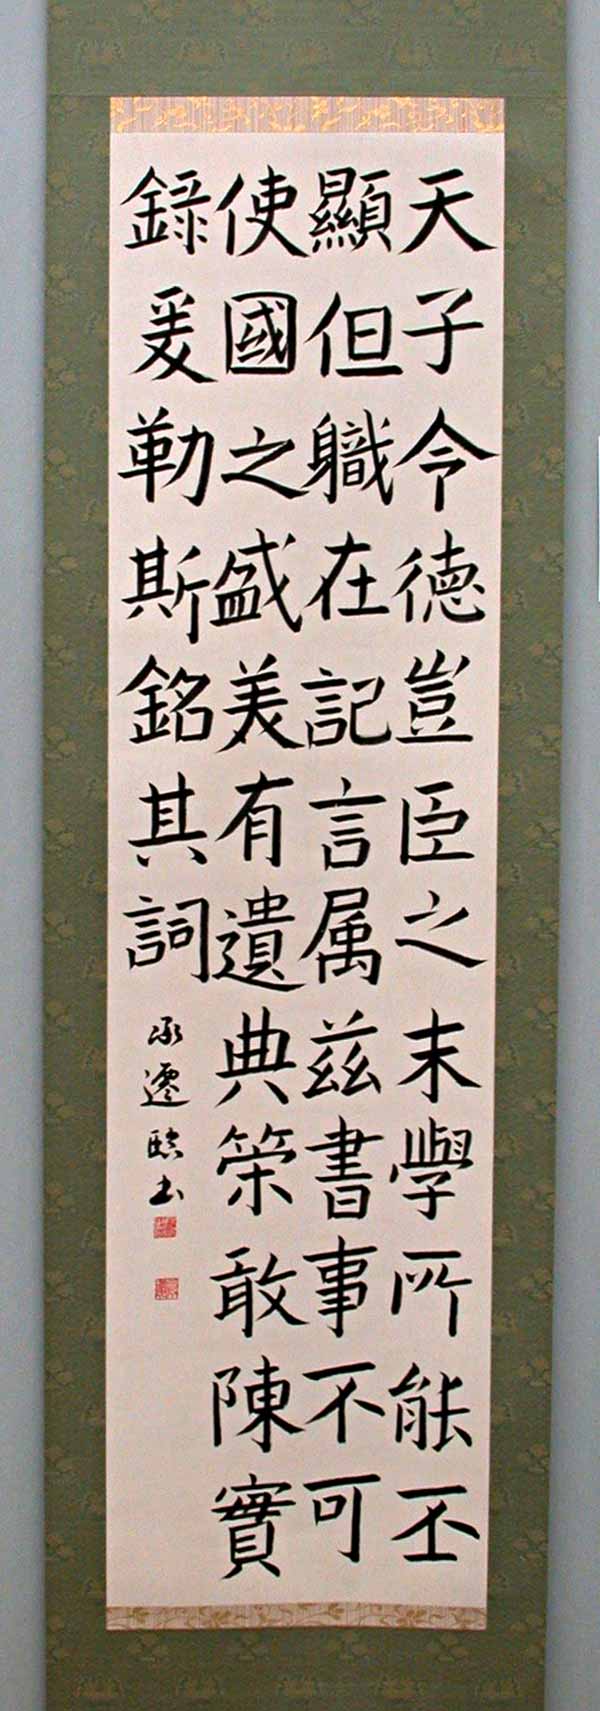 天子令德豈臣之末學所能丕
顯但職在記言属茲書事不可
使國之盛美有遺典策敢陳實
錄爰勒斯銘其詞
承遷臨書